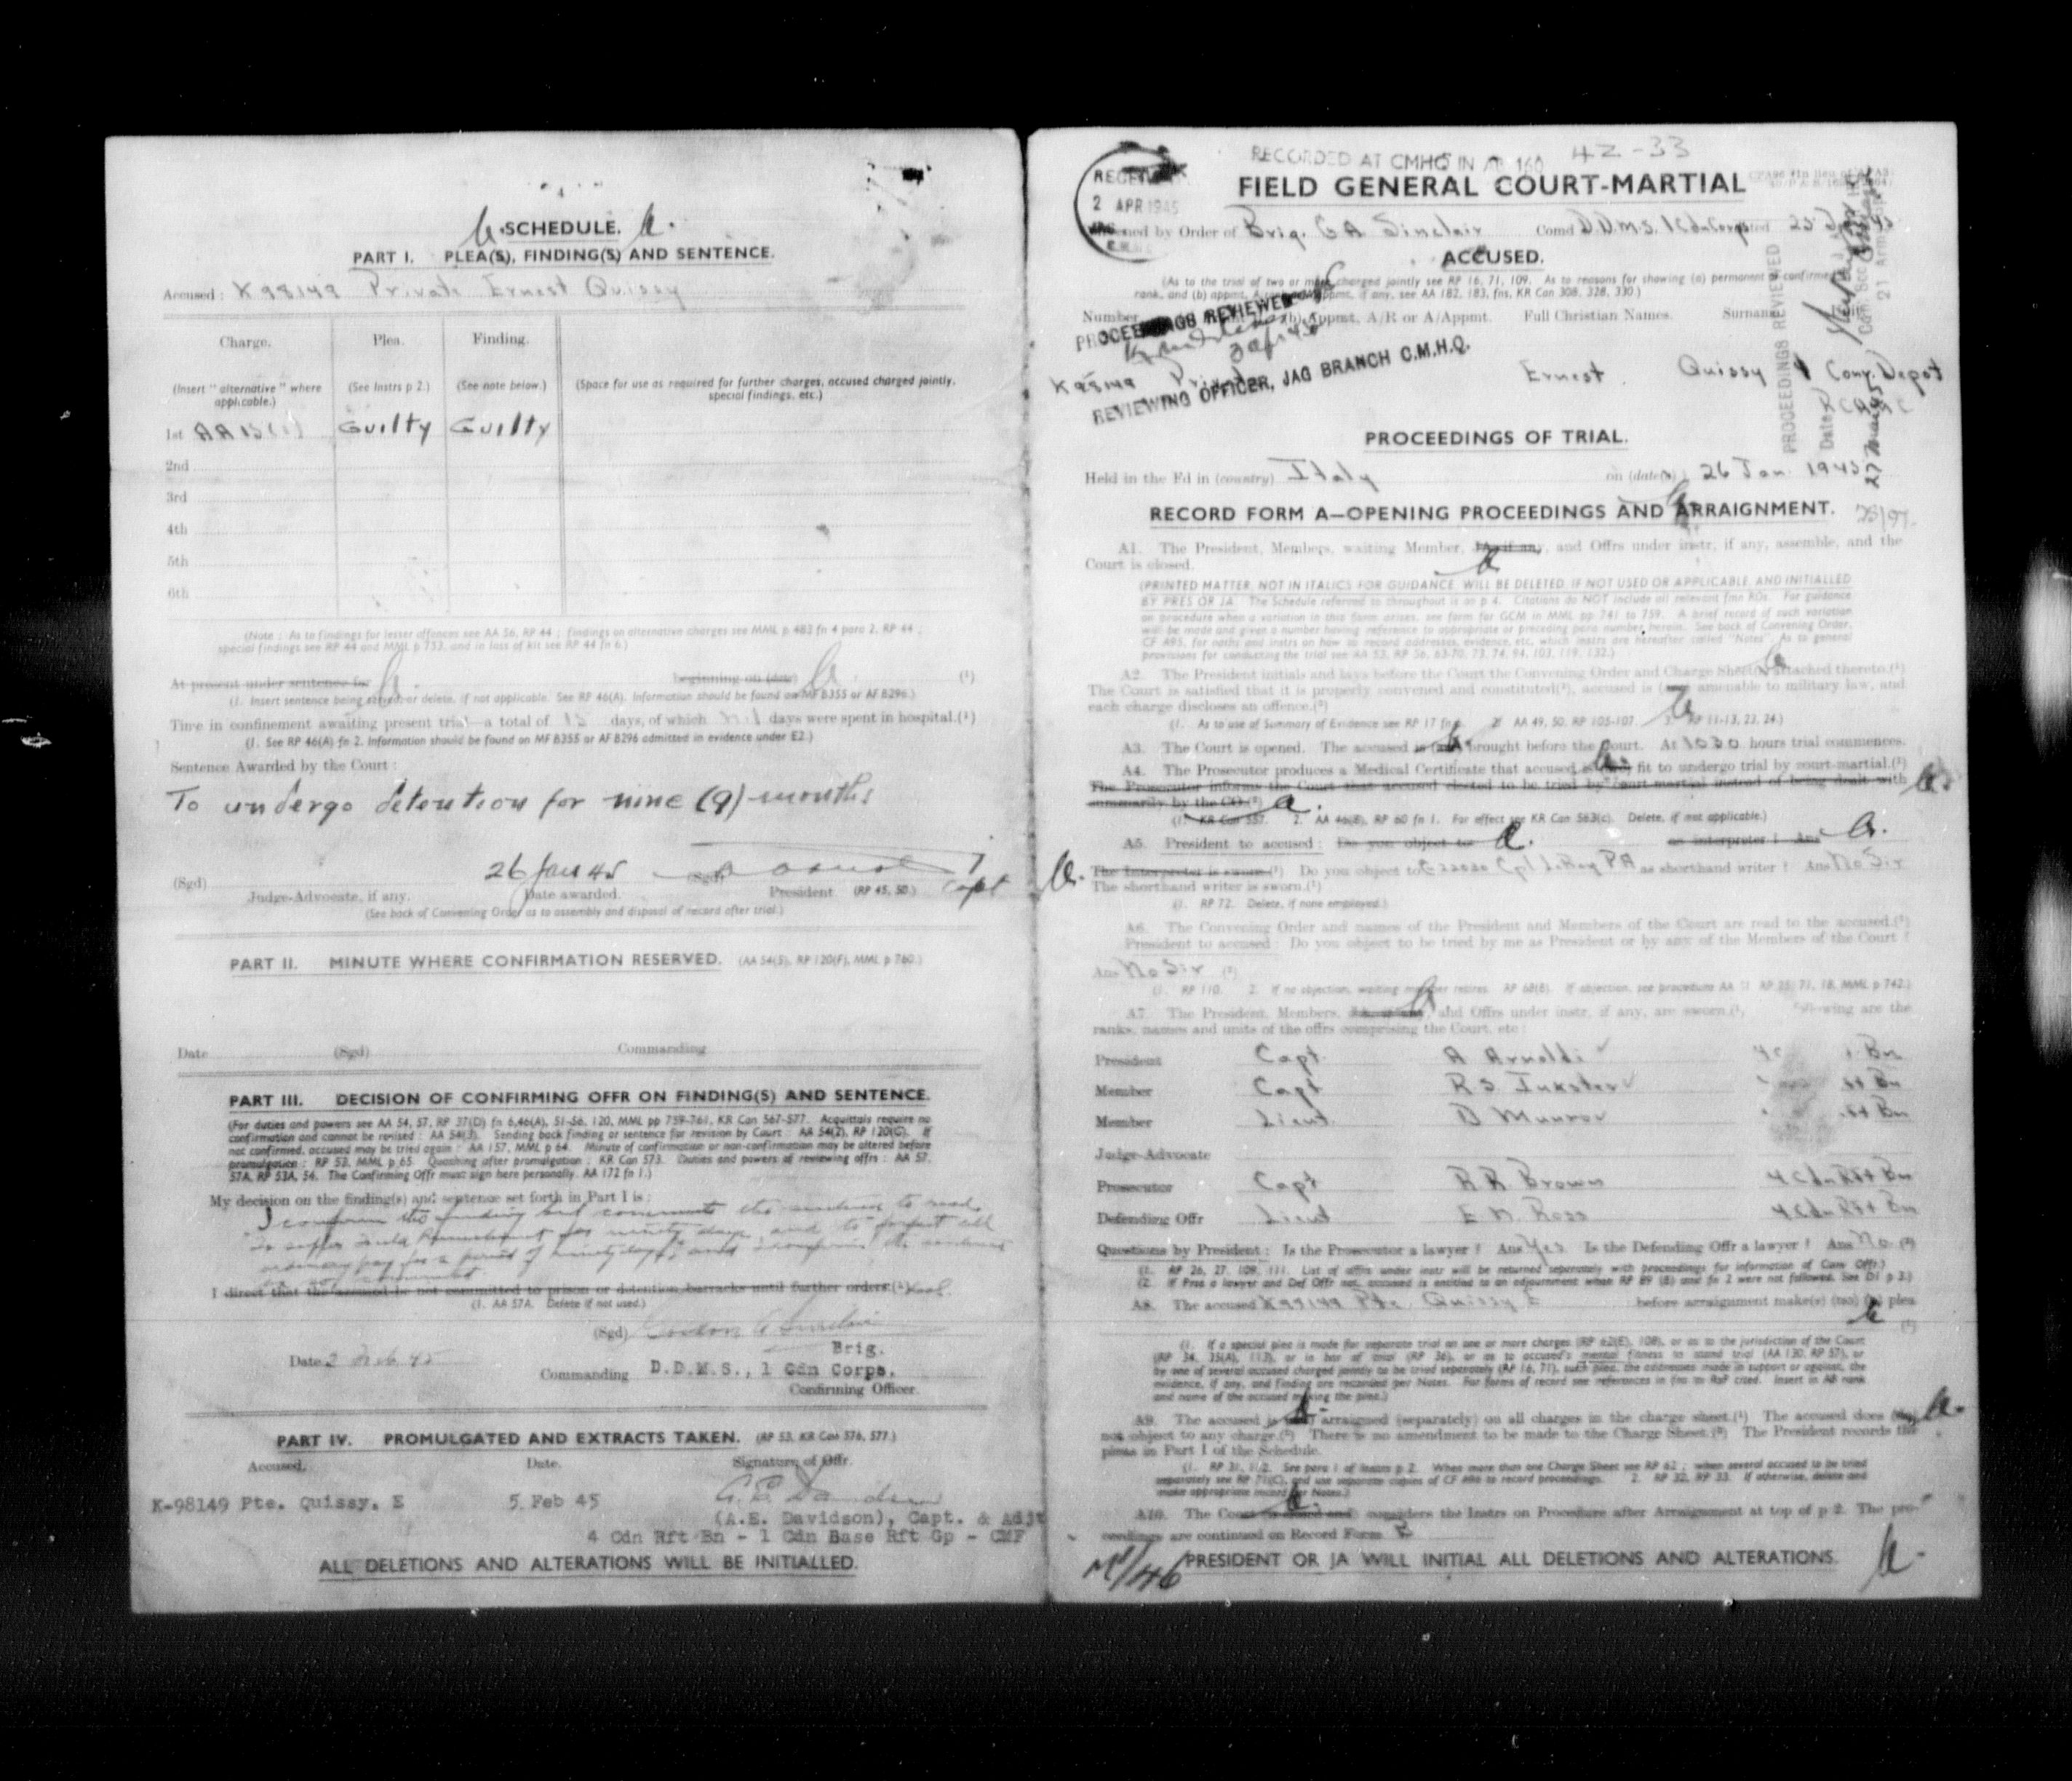 SCHEDULE.
PART I. PLEA(S), FINDING(S) AND SENTENCE.
Accused: K98149 Private Ernest Quissy
Charge. Plea. Finding.
(Insert "alternative" where applicable.) (See Instrs p 2.) (See note below.) (Space for use as required for further charges, accused charged jointly, special findings, etc.)
1st AA 15(1) Guilty Guilty
2nd
3rd
4th
5th
6th
(Note: As to findings for lesser offences see AA 56, RP 44; findings on alternative charges see MML p 483 fn 4 para 2, RP 44;
special findings see RP 44 and MML p 753, and in loss of kit see RP 44 fn 6.)
At present under sentence for beginning on (date) (1)
(1. Insert sentence being served or delete, if not applicable. See RP 46(A). Information should be found on MF B355 or AF B296.)
Time in confinement awaiting present trial—a total of days, of which Nil days were spent in hospital.(1)
(1. See RP 46(A) fn 2. Information should be found on MF B355 or AF B296 admitted in evidence under E2.)
Sentence Awarded by the Court:
To undergo detention for nine (9) months
26 Jan 45 Capt
(Sgd) (Sgd)
Judge-Advocate, if any. Date awarded. President (RP 45, 50.)
(See back of Convening Order as to assembly and disposal of record after trial.)
PART II. MINUTE WHERE CONFIRMATION RESERVED. (AA 54(5), RP 120(F), MML p 760.)
Date (Sgd) Commanding
PART III. DECISION OF CONFIRMING OFFR ON FINDING(S) AND SENTENCE.
(For duties and powers see AA 54, 57, RP 37(D) fn 6,46(A), 51-56, 120, MML pp 759-761, KR Can 567-577. Acquittals require no
confirmation and cannot be revised: AA 54(3). Sending back finding or sentence for revision by Court: AA 54(2), RP 120(G). If
not confirmed, accused may be tried again: AA 157, MML p 64. Minute of confirmation or non-confirmation may be altered before
promulgation: RP 53, MML p 65. Quashing after promulgation: KR Can 573. Duties and powers of reviewing offrs: AA 57,
57A, RP 53A, 54. The Confirming Offr must sign here personally. AA 172 fn 1.)
My decision on the finding(s) and sentence set forth in Part I is:
I confirm the finding and commute the sentence to read
"To suffer field punishment for ninety days and to forfeit all
ordinary pay for a period of ninety days" and I confirm the sentence
I direct that the accused be not committed to prison or detention barracks until further orders.(1)
(1. AA 57A. Delete if not used.)
(Sgd)
Brig.
Date 2 Feb 45 Commanding D.D.M.S., 1 Cdn Corps.
Confirming Officer.
PART IV. PROMULGATED AND EXTRACTS TAKEN. (RP 53, KR Can 576, 577.)
Accused. Date. Signature of Offr.
K-98149 Pte. Quissy. E 5 Feb 45
(A.E. Davidson), Capt. & Adjt
4 Cdn Rft Bn - 1 Cdn Base Rft Gp - CMF
ALL DELETIONS AND ALTERATIONS WILL BE INITIALLED.
RECORDED AT CMHQ IN 160 42-33
RECEIVED
2 APR 1945
FIELD GENERAL COURT-MARTIAL
by Order of Brig. GA Sinclair Comd D.D.M.S. 1 Cdn Corps
ACCUSED.
(As to the trial of two or more charged jointly see RP 16, 71, 109. As to reasons for showing (a) permanent or confirmed
rank, and (b) appmt, if any, see AA 182, 183, fns, KR Can 308, 328, 330.)
Number (b) Appmt, A/R or A/Appmt. Full Christian Names. Surname
PROCEEDINGS REVIEWED
K98149 Private Ernest Quissy Conv. Depot
REVIEWING OFFICER, JAG BRANCH C.M.H.Q.
PROCEEDINGS REVIEWED
Date
27 Mar 45
PROCEEDINGS OF TRIAL.
Held in the Fd in (country) Italy on (date(s)) 26 Jan. 1945
RECORD FORM A—OPENING PROCEEDINGS AND ARRAIGNMENT.
A1. The President, Members, waiting Member, JA, if any, and Offrs under instr, if any, assemble, and the
Court is closed.
(PRINTED MATTER, NOT IN ITALICS FOR GUIDANCE, WILL BE DELETED, IF NOT USED OR APPLICABLE, AND INITIALLED
BY PRES OR JA. The Schedule referred to throughout is on p 4. Citations do NOT include all relevant fns ROs. For guidance
on procedure when a variation in this form arises, see form for GCM in MML pp 741 to 759. A brief record of such variation
will be made and given a number having reference to appropriate or preceding para number herein. See back of Convening Order,
CF A95, for oaths and instrs on how to record addresses, evidence, etc, which instrs are hereafter called "Notes". As to general
provisions for conducting the trial see AA 53, RP 56, 63-70, 73, 74, 94, 103, 119, 132.)
A2. The President initials and lays before the Court the Convening Order and Charge Sheet(s) attached thereto.(1)
The Court is satisfied that it is properly convened and constituted(2), accused is (are) amenable to military law, and
each charge discloses an offence.(3)
(1. As to use of Summary of Evidence see RP 17 fn 2. AA 49, 50, RP 105-107. 3. RP 11-13, 23, 24.)
A3. The Court is opened. The accused is (are) brought before the Court. At 1030 hours trial commences.
A4. The Prosecutor produces a Medical Certificate that accused is (are) fit to undergo trial by court-martial.(1)
The Prosecutor informs the Court that accused elected to be tried by court-martial instead of being dealt with
summarily by the CO.(2)
(1. KR Can 557. 2. AA 46(8), RP 60 fn 1. For effect see KR Can 563(c). Delete, if not applicable.)
A5. President to accused: Do you object to as interpreter? Ans
The Interpreter is sworn.(1) Do you object to Cpl PA as shorthand writer? Ans No Sir
The shorthand writer is sworn.(1)
(1. RP 72. Delete, if none employed.)
A6. The Convening Order and names of the President and Members of the Court are read to the accused.(1)
President to accused: Do you object to be tried by me as President or by any of the Members of the Court?
Ans No Sir (2)
(1. RP 110. 2. If no objection, waiting member retires. RP 68(B). If objection, see procedure AA 51 RP 25, 71, 18, MML p 742.)
A7. The President, Members, JA, if any, and Offrs under instr, if any, are sworn.(1) following are the
ranks, names and units of the offrs comprising the Court, etc:
President Capt A Arnoldi Bn
Member Capt R.S. Inkster Bn
Member Lieut D Munro Bn
Judge-Advocate
Prosecutor Capt R.R. Brown 4 Cdn Rft Bn
Defending Offr Lieut E N. Ross 4 Cdn Rft Bn
Questions by President: Is the Prosecutor a lawyer? Ans Yes Is the Defending Offr a lawyer? Ans No (2)
(1. RP 26, 27, 109, 111. List of offrs under instr will be returned separately with proceedings for information of Conv Offr.)
(2. If Pros a lawyer and Def Offr not, accused is entitled to an adjournment when RP 89 (B) and fn 2 were not followed. See D1 p 3.)
A8. The accused K98149 Pte. Quissy E before arraignment make(s) (no) (a) plea
(1)
(1. If a special plea is made for separate trial on one or more charges (RP 62(E), 108), or as to the jurisdiction of the Court
(RP 34, 35(A), 113), or in bar of trial (RP 36), or as to accused's mental fitness to stand trial (AA 130, RP 57), or
by one of several accused charged jointly to be tried separately (RP 16, 71), such plea, the addresses made in support or against, the
evidence, if any, and finding are recorded per Notes. For forms of record see references in fns to RsP cited. Insert in A8 rank
and name of the accused making the plea.)
A9. The accused is (are) arraigned (separately) on all charges in the charge sheet.(1) The accused does (do)
not object to any charge.(2) There is no amendment to be made to the Charge Sheet.(2) The President records the
pleas in Part I of the Schedule.
(1. RP 31, 112. See para 1 of Instrs p 2. When more than one Charge Sheet see RP 62; when several accused to be tried
separately see RP 71(C), and use separate copies of CF A96 to record proceedings. 2. RP 32, RP 33. If otherwise, delete and
make appropriate record per Notes.)
A10. The Court considers the Instrs on Procedure after Arraignment at top of p 2. The pro-
ceedings are continued on Record Form B
PRESIDENT OR JA WILL INITIAL ALL DELETIONS AND ALTERATIONS.